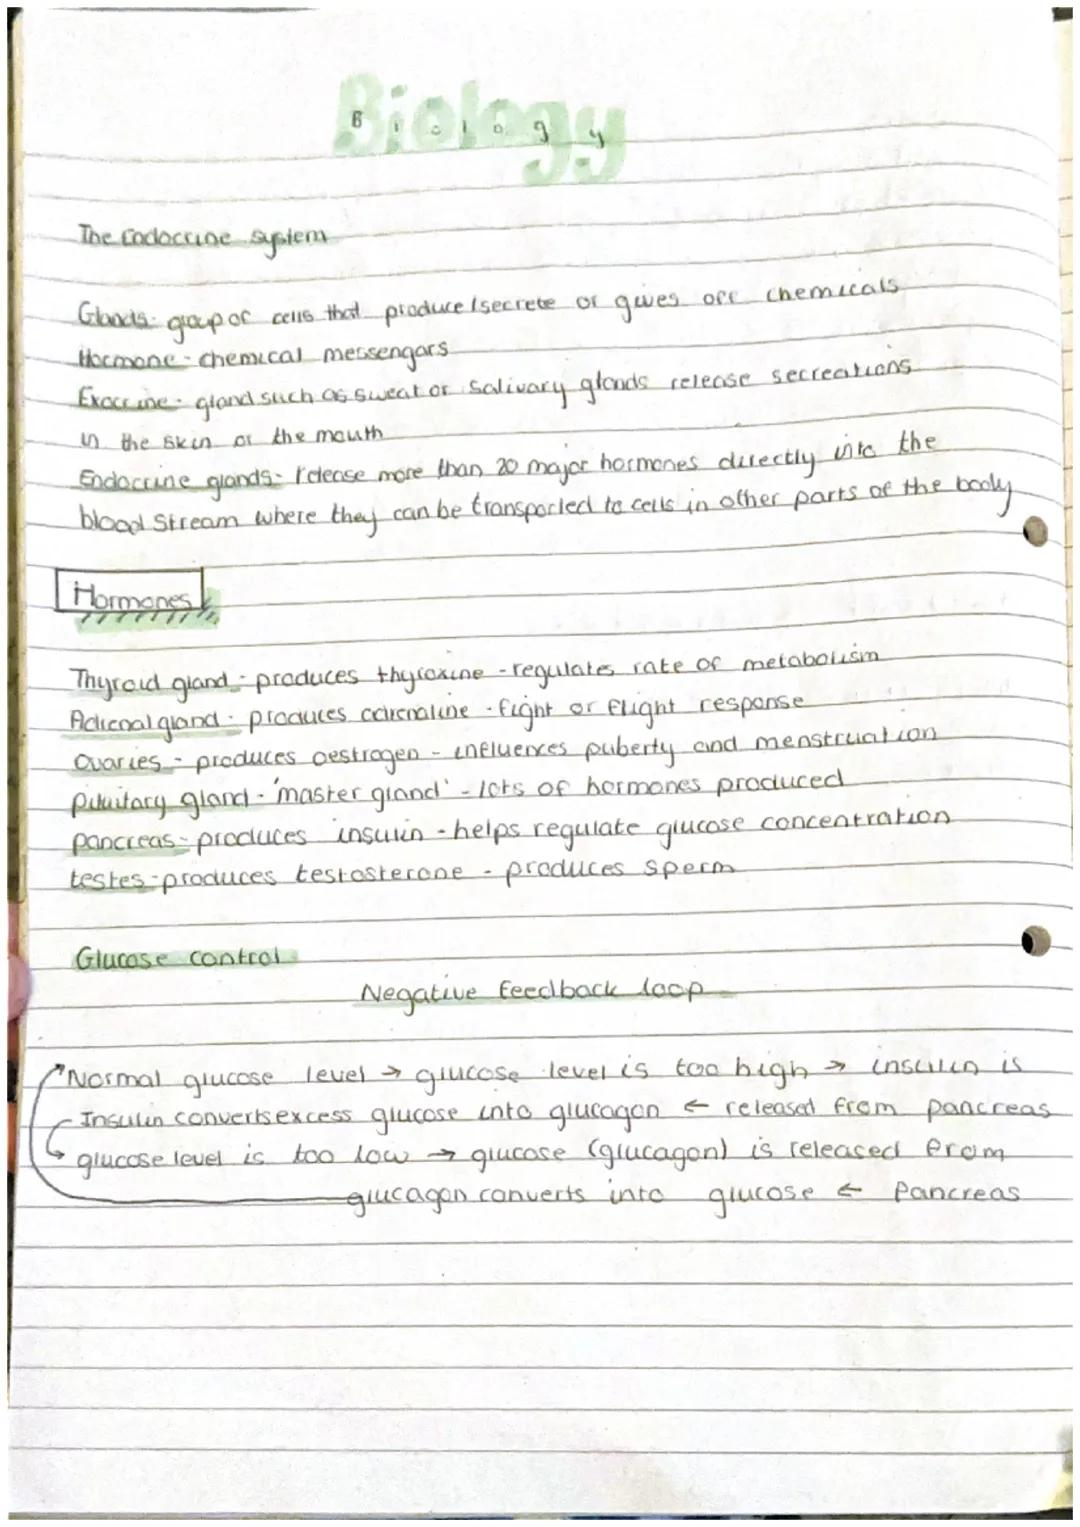 Biology
The Endocrine system
Glands: group of cells that produce/secrete or gives off chemicals
Hormone - chemical messengars
Exocrine - gland such as sweat or salivary glands release secreations
in the skin or the mouth
Endocrine glands - release more than 20 major hormones directly into the
blood stream where they can be transported to cells in other parts of the body
Hormones
Thyroid gland - produces thyroxine - regulates rate of metabolism
Adrenal gland - produces adrenaline - fight or flight response
Ovaries - produces oestrogen - influences puberty and menstruation
Pituitary gland - 'master gland' - lots of hormones produced
pancreas - produces insulin - helps regulate glucose concentration
testes - produces testosterone - produces sperm
Glucose control
Negative feedback loop
Normal glucose level → glucose level is too high → insulin is
Insulin converts excess glucose into glucagon ← released from pancreas
glucose level is too low → glucose (glucagon) is released from
glucagon converts into glucose ← Pancreas